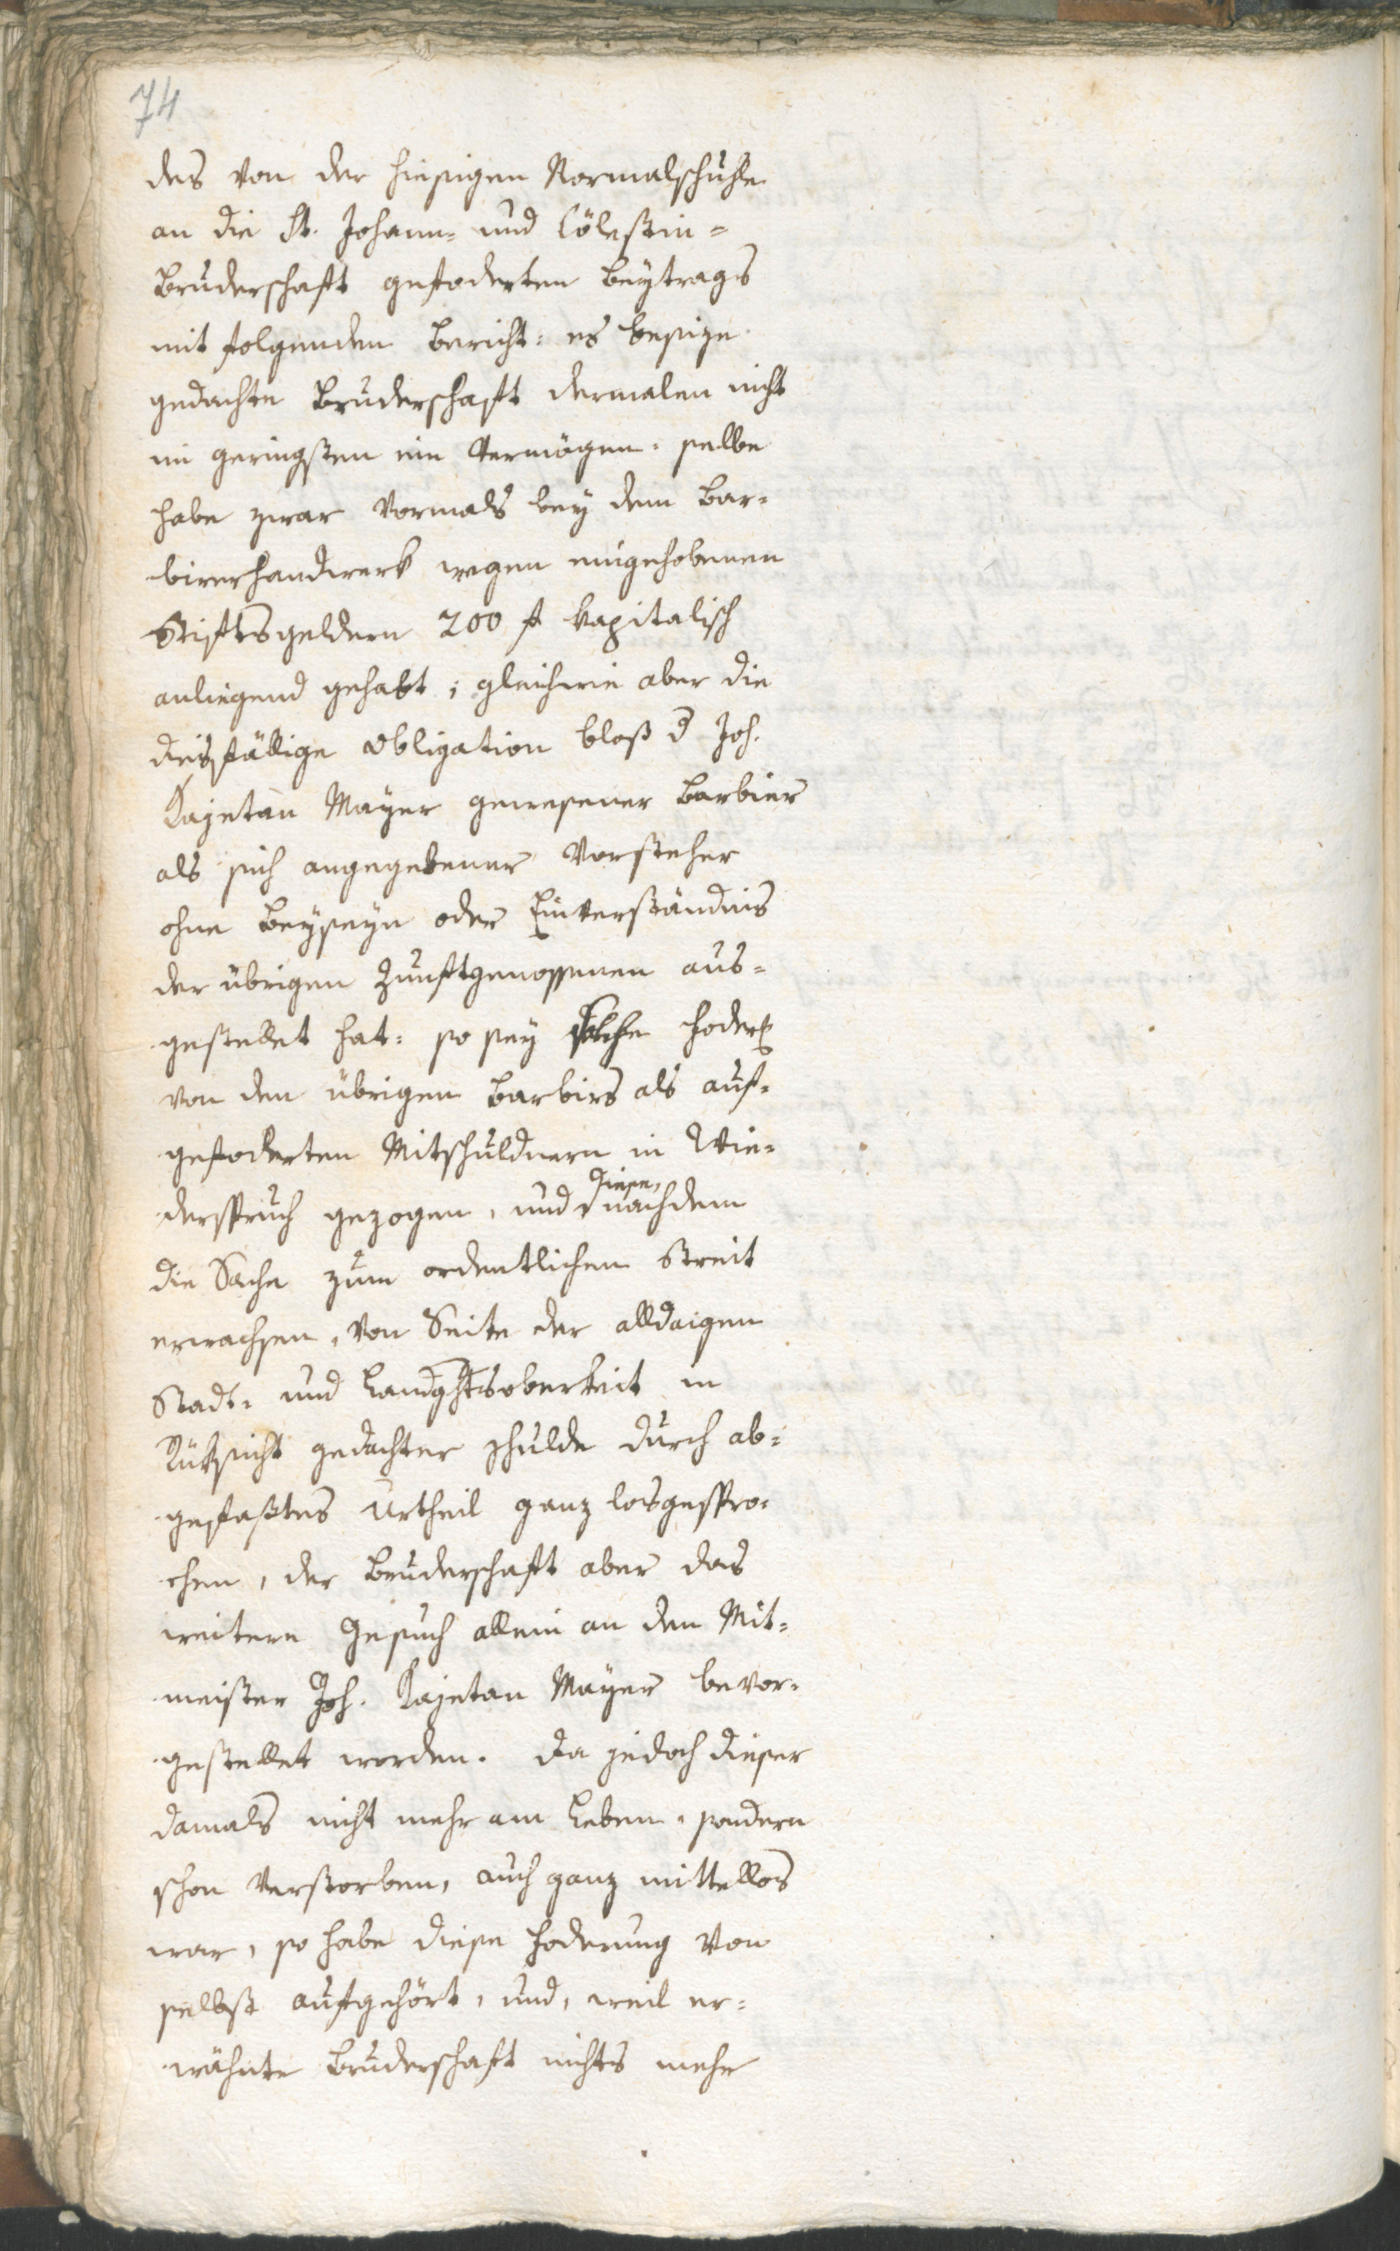 74
des von der hiesigen Normalschuhle
an die St. Johann- und Cölestin-
Bruderschaft gefoderten Beytrags
mit folgenden Bericht: es besize
gedachte Bruderschaft dermalen nicht
im geringsten ein Vermögen. selbe
habe zwar vormals bey dem Bar-
birerhandwerk wegen eingehobenen
Stiftsgeldern 200 f kapitalisch
anliegend gehabt; gleichwie aber die
diesfällige Obligation bloß d Joh.
Kajetan Mayer gewesener Barbier
als sich angegebener Vorsteher
ohne Beyseyn oder Einverständnis
der übrigen Zunftgenossenen aus-
gestellet hat: so sey solche Foder
von den übrigen Barbirs als auf-
gefoderten Mitschuldnern in Wie-
derspruch gezogen, und diese, nachdem
die Sache zum ordentlichen Streit
erwachsen, von Seite der alldaigen
Stadt- und Landghtsoberkeit in
Rüksicht gedachter Schulde durch ab-
gefaßtes Urtheil ganz losgespro-
chen, der Bruderschaft aber das
weitere Gesuch allein an den Mit-
meister Joh. Kajetan Mayer bevor-
gestellet worden. Da jedoch dieser
damals nicht mehr am Leben, sondern
schon verstorben, auch ganz mittellos
war, so habe diese Foderung von
selbst aufgehört, und, weil er-
wähnte Bruderschaft nichts mehr